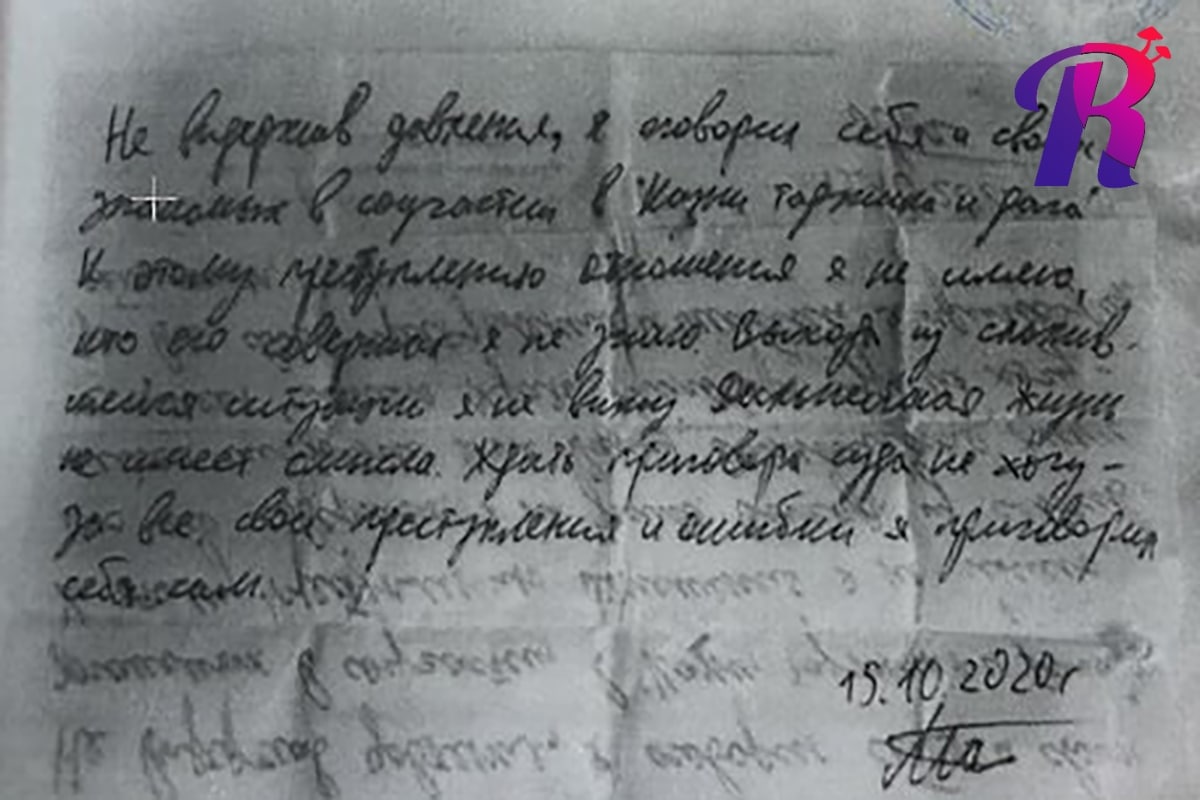 Не выдержав давления, я оговорил себя и своих
знакомых в соучастии в "Казни таджика и дага"
К этому преступлению отношения я не имею,
кто его совершил я не знаю. Выхода из сложив-
шейся ситуации я не вижу. Дальнейшая жизнь
не имеет смысла. Ждать приговора суда не хочу -
за все свои преступления и ошибки я приговорил
себя сам.
15.10.2020г
R